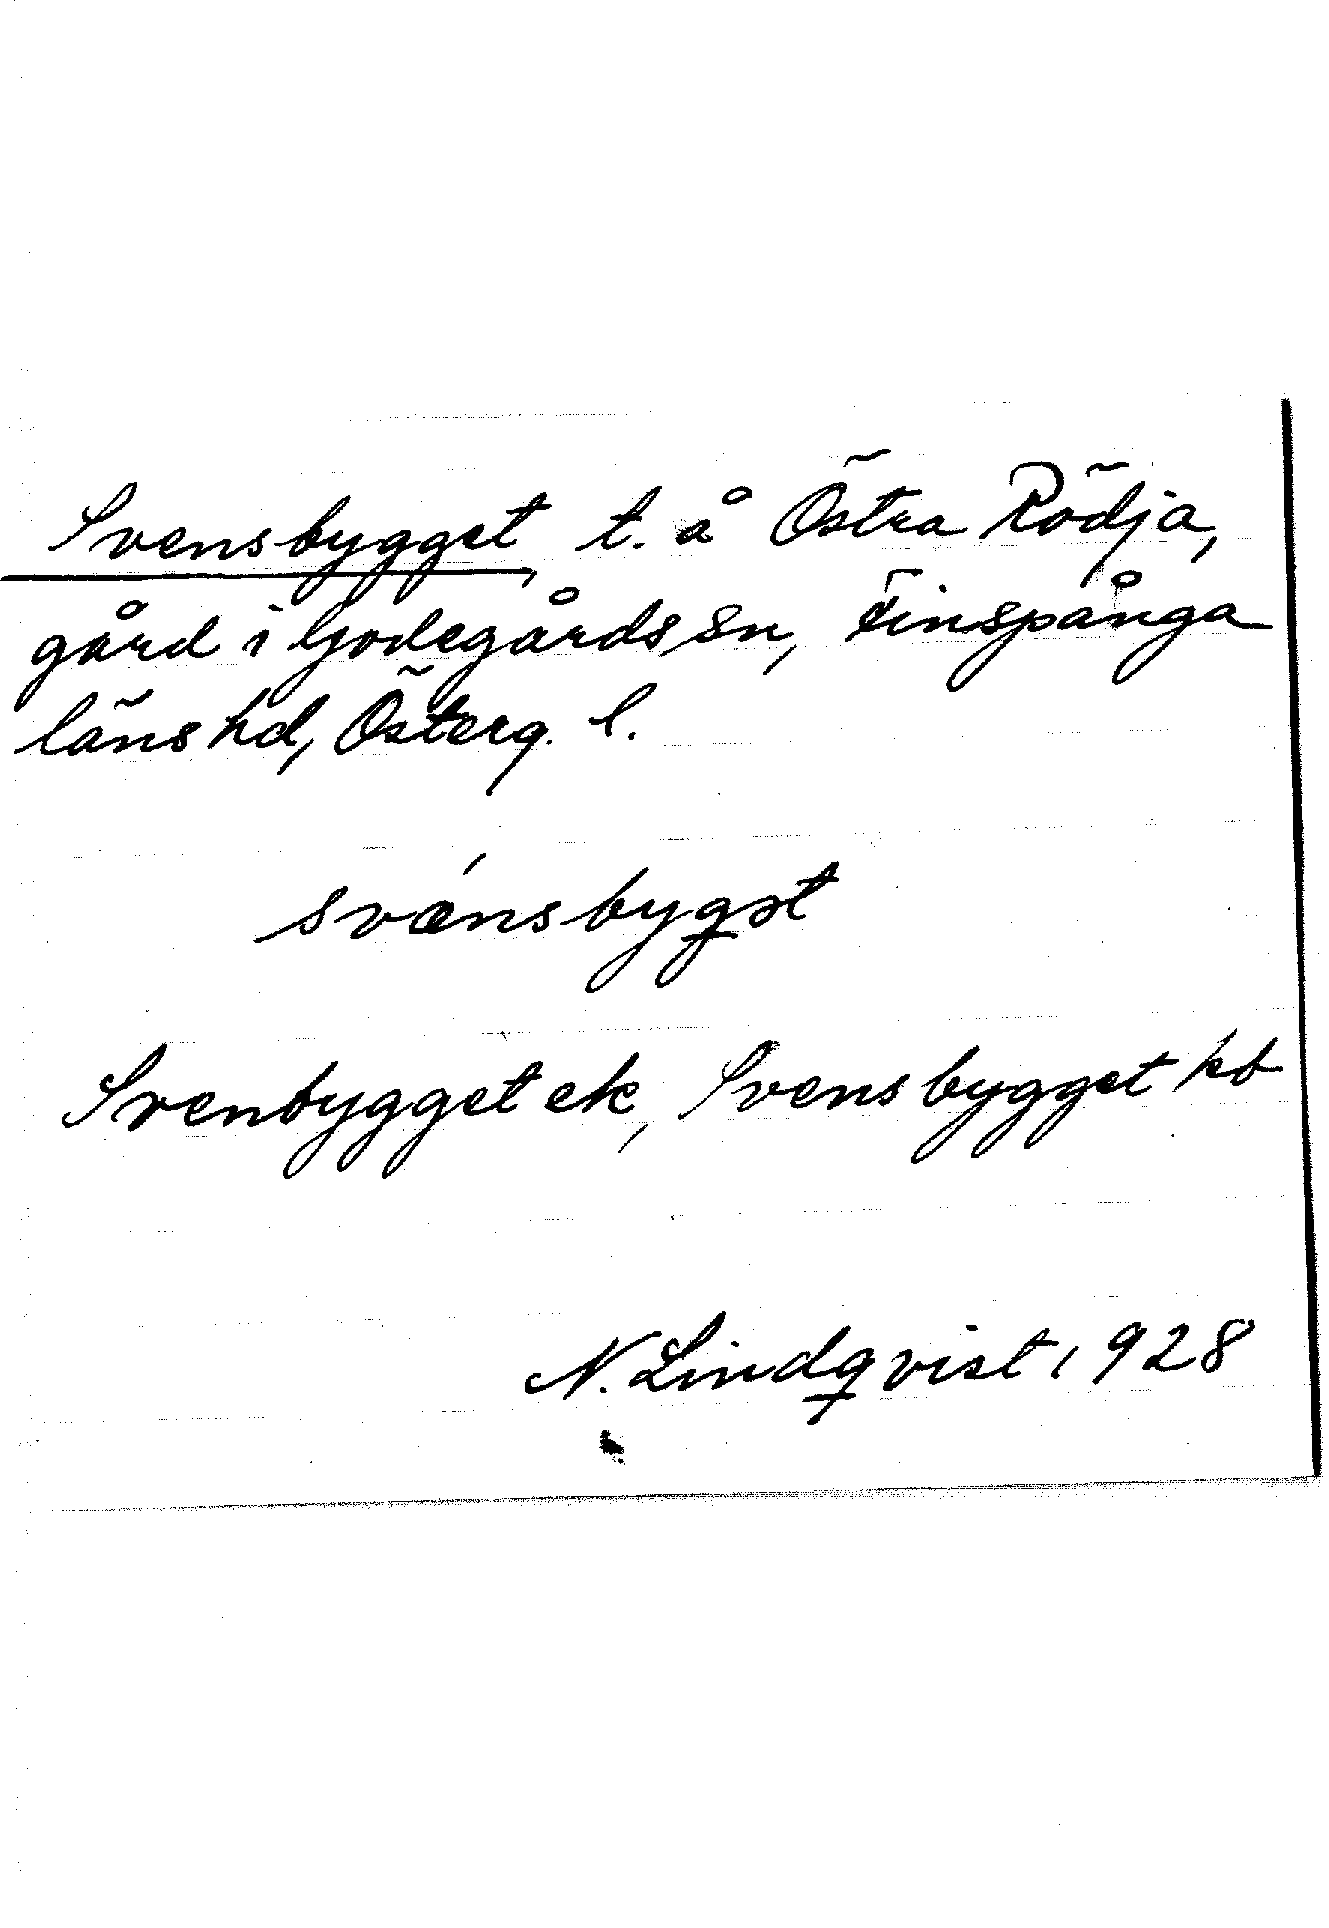 Svensbygget, t. å Östra Rödja,
gård i Godegårds sn, Finspånga
läns hd, Österg. l.
svǽnsbygət
Svenbygget ek, Svensbygget kb
N. Lindqvist 1928